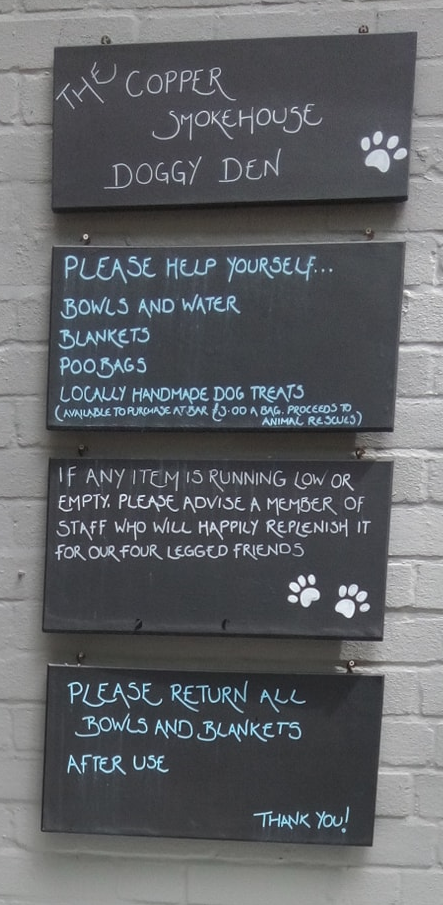 THE COPPER
SMOKEHOUSE
DOGGY DEN
PLEASE HELP YOURSELF...
BOWLS AND WATER
BLANKETS
POO BAGS
LOCALLY HANDMADE DOG TREATS
(AVAILABLE TO PURCHASE AT BAR £3.00 A BAG. PROCEEDS TO
ANIMAL RESCUES)
IF ANY ITEM IS RUNNING LOW OR
EMPTY. PLEASE ADVISE A MEMBER OF
STAFF WHO WILL HAPPILY REPLENISH IT
FOR OUR FOUR LEGGED FRIENDS
PLEASE RETURN ALL
BOWLS AND BLANKETS
AFTER USE
THANK YOU!